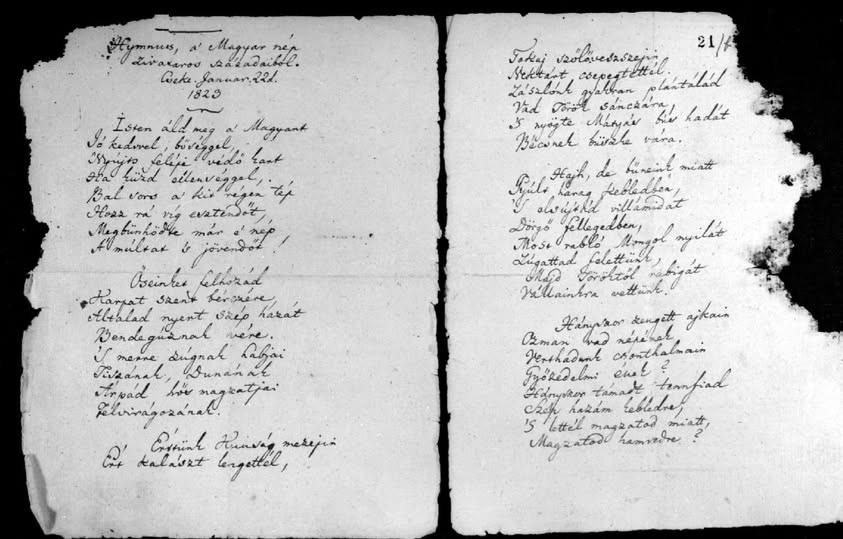 Hymnus, a' Magyar nép
Zivataros századaiból.
Cseke. Januar. 22d.
1823
Isten áld meg a' Magyart
Jó kedvvel, bőséggel,
'Nyújts feléje védő kart
Ha küzd ellenséggel,
Bal sors a' kit régen tép
Hozz rá víg esztendőt,
Megbünhődte már e' nép
A' multat 's jövendőt!
Őseinket felhozád
Kárpát szent bérczére,
Általad nyert szép hazát
Bendegúznak vére.
'S merre zúgnak habjai
Tiszának, Dunának
Árpád hős magzatjai
Felvirágozának.
Értünk Kunság mezejin
Ért kalászt lengettél,
21/
Tokaj szőlővesszejin
Nektárt csepegtettél.
Zászlónk gyakran plántálád
Vad Török sánczára,
'S nyögte Mátyás bús hadát
Bécsnek büszke vára.
Hajh, de bűneink miatt
Gyúlt harag kebledben,
'S elsújtád villámidat
Dörgő fellegedben,
Most rabló Mongol nyilát
Zúgattad felettünk,
Majd Töröktől rabigát
Vállainkra vettünk.
Hányszor zengett ajkain
Ozman vad népének
Vert hadunk csonthalmain
Győzedelmi ének?
Hányszor támadt tennfiad
Szép hazám kebledre,
'S lettél magzatod miatt,
Magzatod hamvedre?